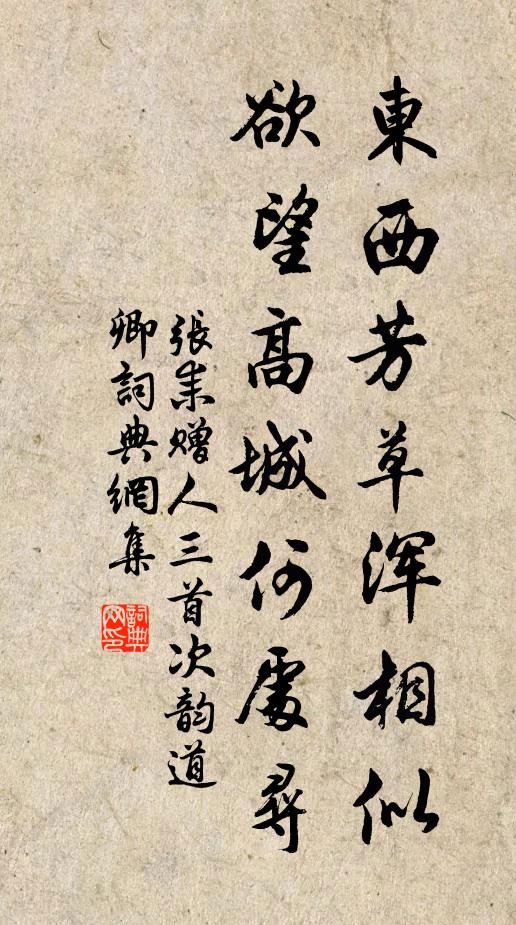 東西芳草渾相似
欲望高城何處尋
張耒贈人三首次韵道
卿詞典網集
詞典网印